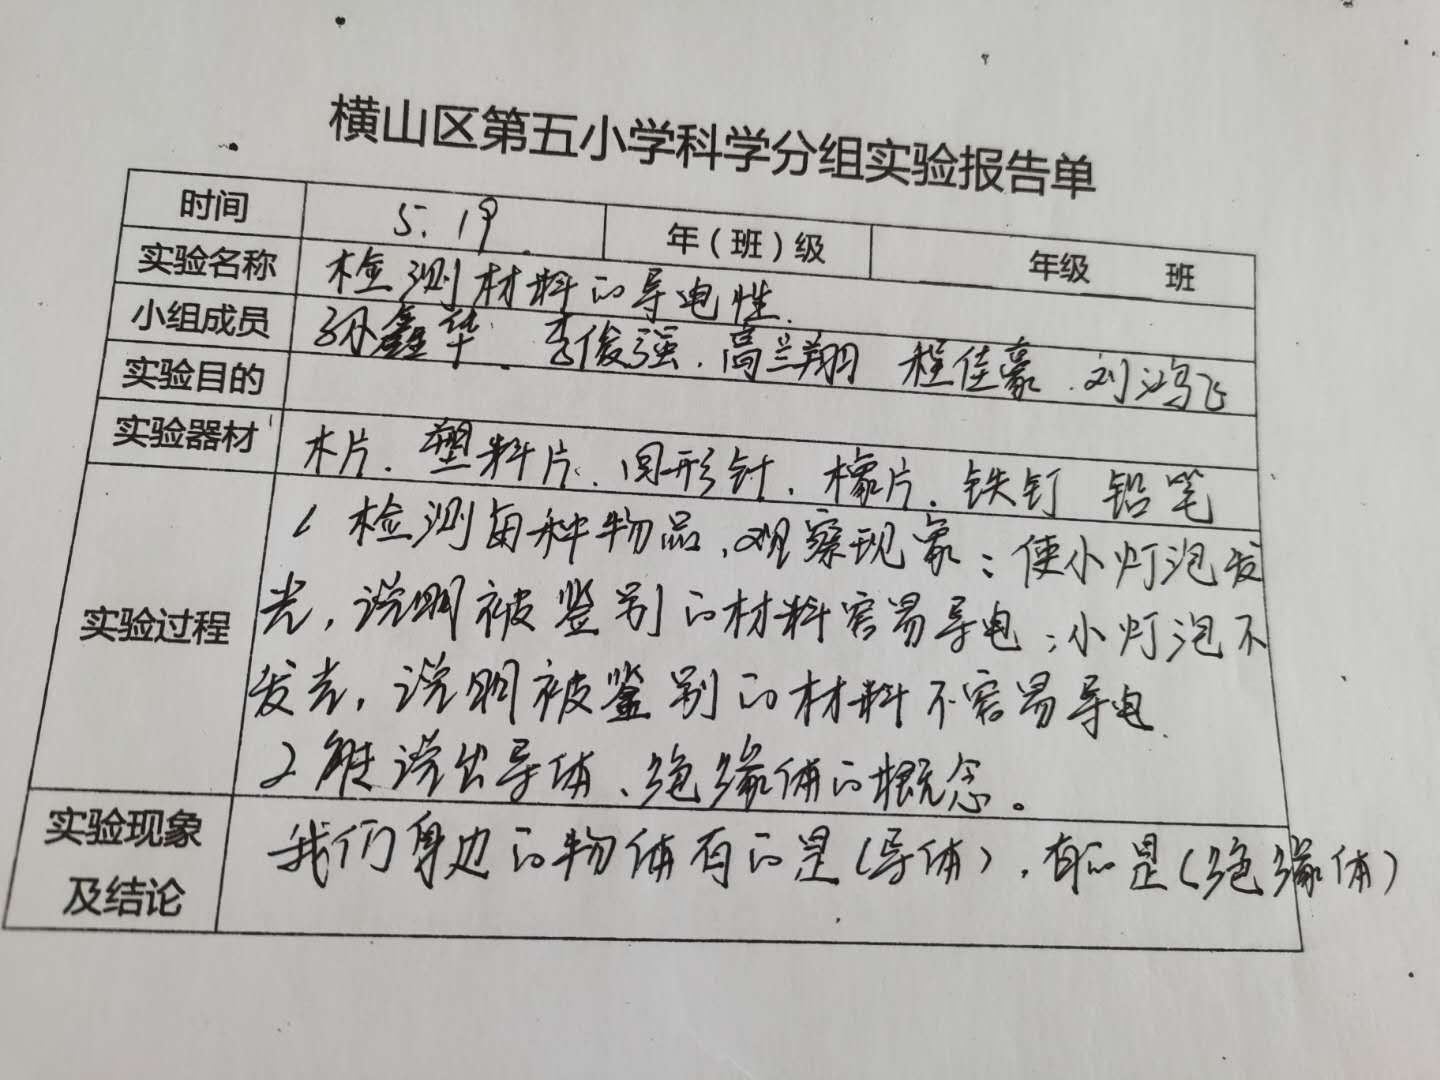 横山区第五小学科学分组实验报告单
时间 5.19. 年(班)级 年级 班
实验名称 检测材料的导电性.
小组成员 孙鑫华、李俊强、高兰翔 程佳豪、刘鸿飞
实验目的
实验器材 木片、塑料片、回形针、橡片、铁钉 铅笔
实验过程
1 检测每种物品,观察现象:使小灯泡发
光,说明被鉴别的材料容易导电;小灯泡不
发光,说明被鉴别的材料不容易导电.
2 能说出导体、绝缘体的概念。
实验现象
及结论
我们身边的物体有的是(导体),有的是(绝缘体)